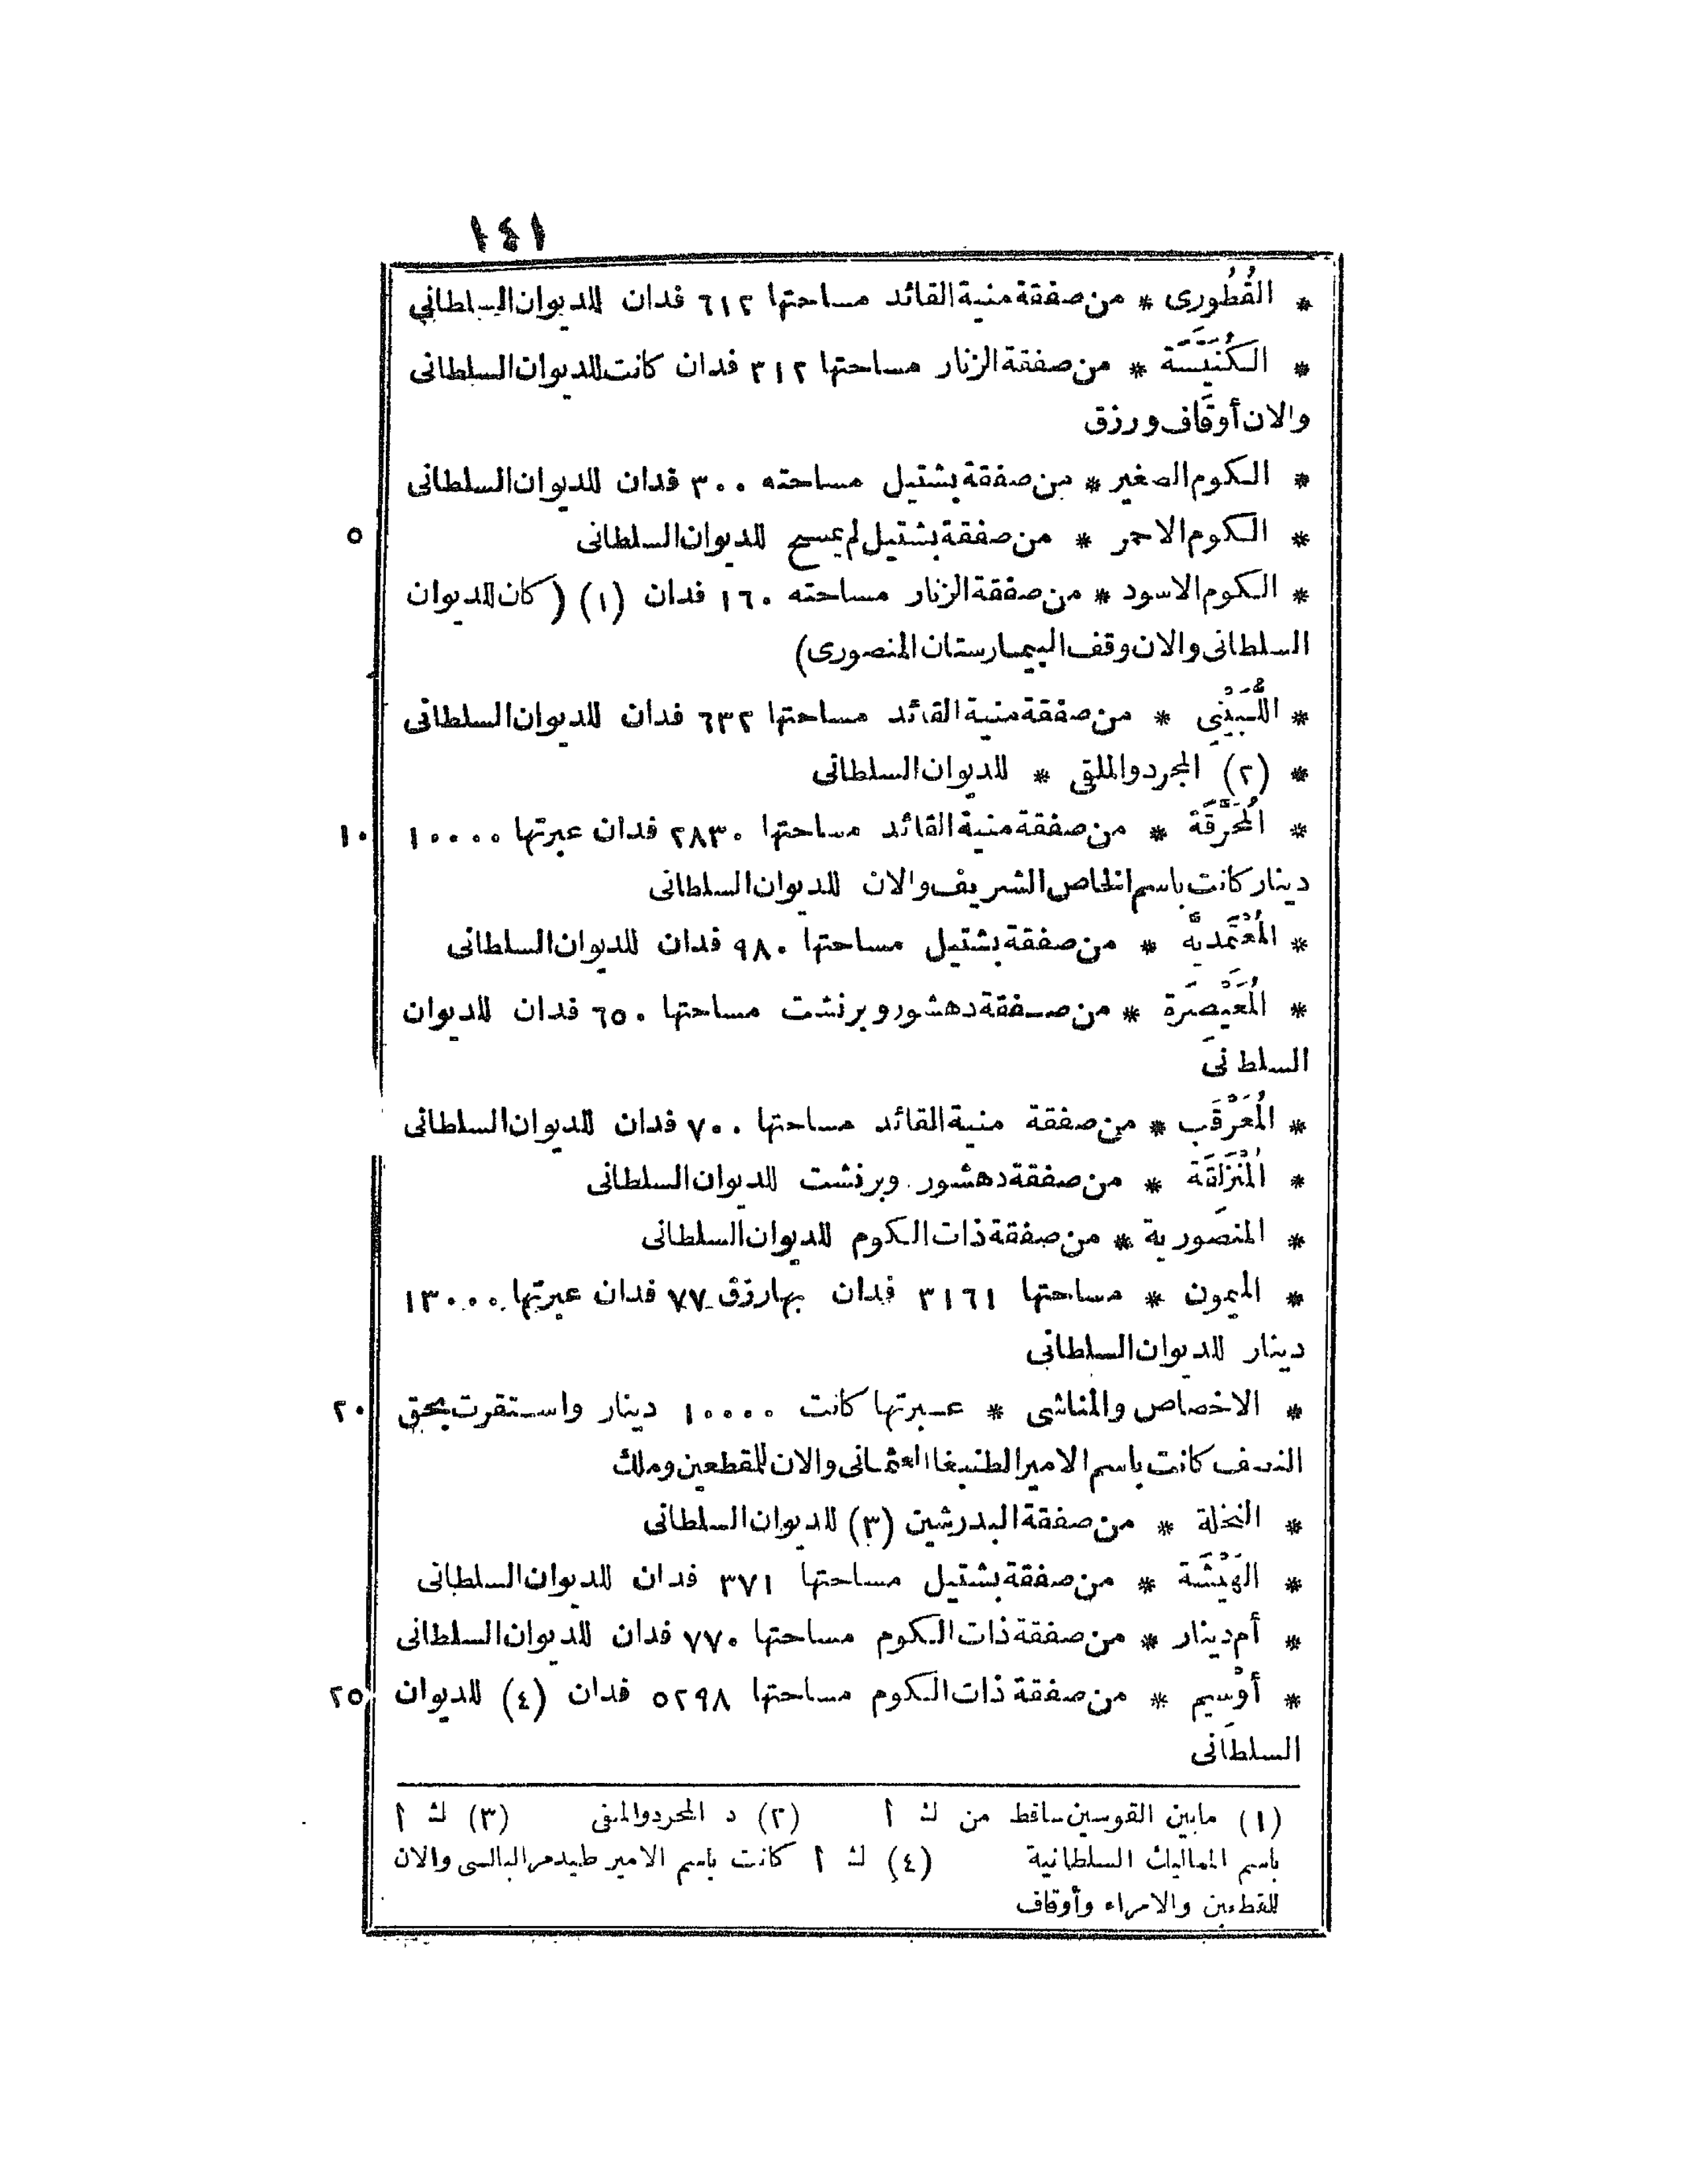 ١٤١
* القُطُورى * من صفقة منية القائد مساحتها ٦١٢ فدان للديوان السلطانى
* الكُنَيَّسَة * من صفقة الزنار مساحتها ٣١٢ فدان كانت للديوان السلطانى
والان أوقاف ورزق
* الكوم الصغير * من صفقة بشتيل مساحته ٣٠٠ فدان للديوان السلطانى
* الكوم الاحمر * من صفقة بشتيل لم يمسح للديوان السلطانى ٥
* الكوم الاسود * من صفقة الزنار مساحته ١٦٠ فدان (١) (كان للديوان
السلطانى والان وقف البيمارستان المنصورى)
* اللُّبَيْنِى * من صفقة منية القائد مساحتها ٦٣٢ فدان للديوان السلطانى
* (٢) المجرد والملقى * للديوان السلطانى
* المُحَرَّقَة * من صفقة منية القائد مساحتها ٢٨٣٠ فدان عبرتها ١٠٠٠٠ ١٠
دينار كانت باسم الخاص الشريف والان للديوان السلطانى
* المُعْتَمَدِيَّة * من صفقة بشتيل مساحتها ٩٨٠ فدان للديوان السلطانى
* المُعَيْصَرَة * من صفقة دهشور وبرنشت مساحتها ٦٥٠ فدان للديوان
السلطانى
* المُعَرْقَب * من صفقة منية القائد مساحتها ٧٠٠ فدان للديوان السلطانى
* المُنْزَلَقَة * من صفقة دهشور وبرنشت للديوان السلطانى
* المنصورية * من صفقة ذات الكوم للديوان السلطانى
* الميمون * مساحتها ٣١٦١ فدان بها رزق ٧٧ فدان عبرتها ١٣٠٠٠
دينار للديوان السلطانى
* الاخصاص والمناشى * عبرتها كانت ١٠٠٠٠ دينار واستقرت بحق ٢٠
النصف كانت باسم الامير الطنبغا العثمانى والان للمقطعين وملك
* النخلة * من صفقة البدرشين (٣) للديوان السلطانى
* الهَيْشَة * من صفقة بشتيل مساحتها ٣٧١ فدان للديوان السلطانى
* أم دينار * من صفقة ذات الكوم مساحتها ٧٧٠ فدان للديوان السلطانى
* أَوْسِيم * من صفقة ذات الكوم مساحتها ٥٢٩٨ فدان (٤) للديوان ٢٥
السلطانى
(١) مابين القوسين ساقط من ك أ (٢) د المحرد والمنى (٣) ك أ
باسم المماليك السلطانية (٤) ك أ كانت باسم الامير طيدمر البالسى والان
للمقطعين والامراء وأوقاف